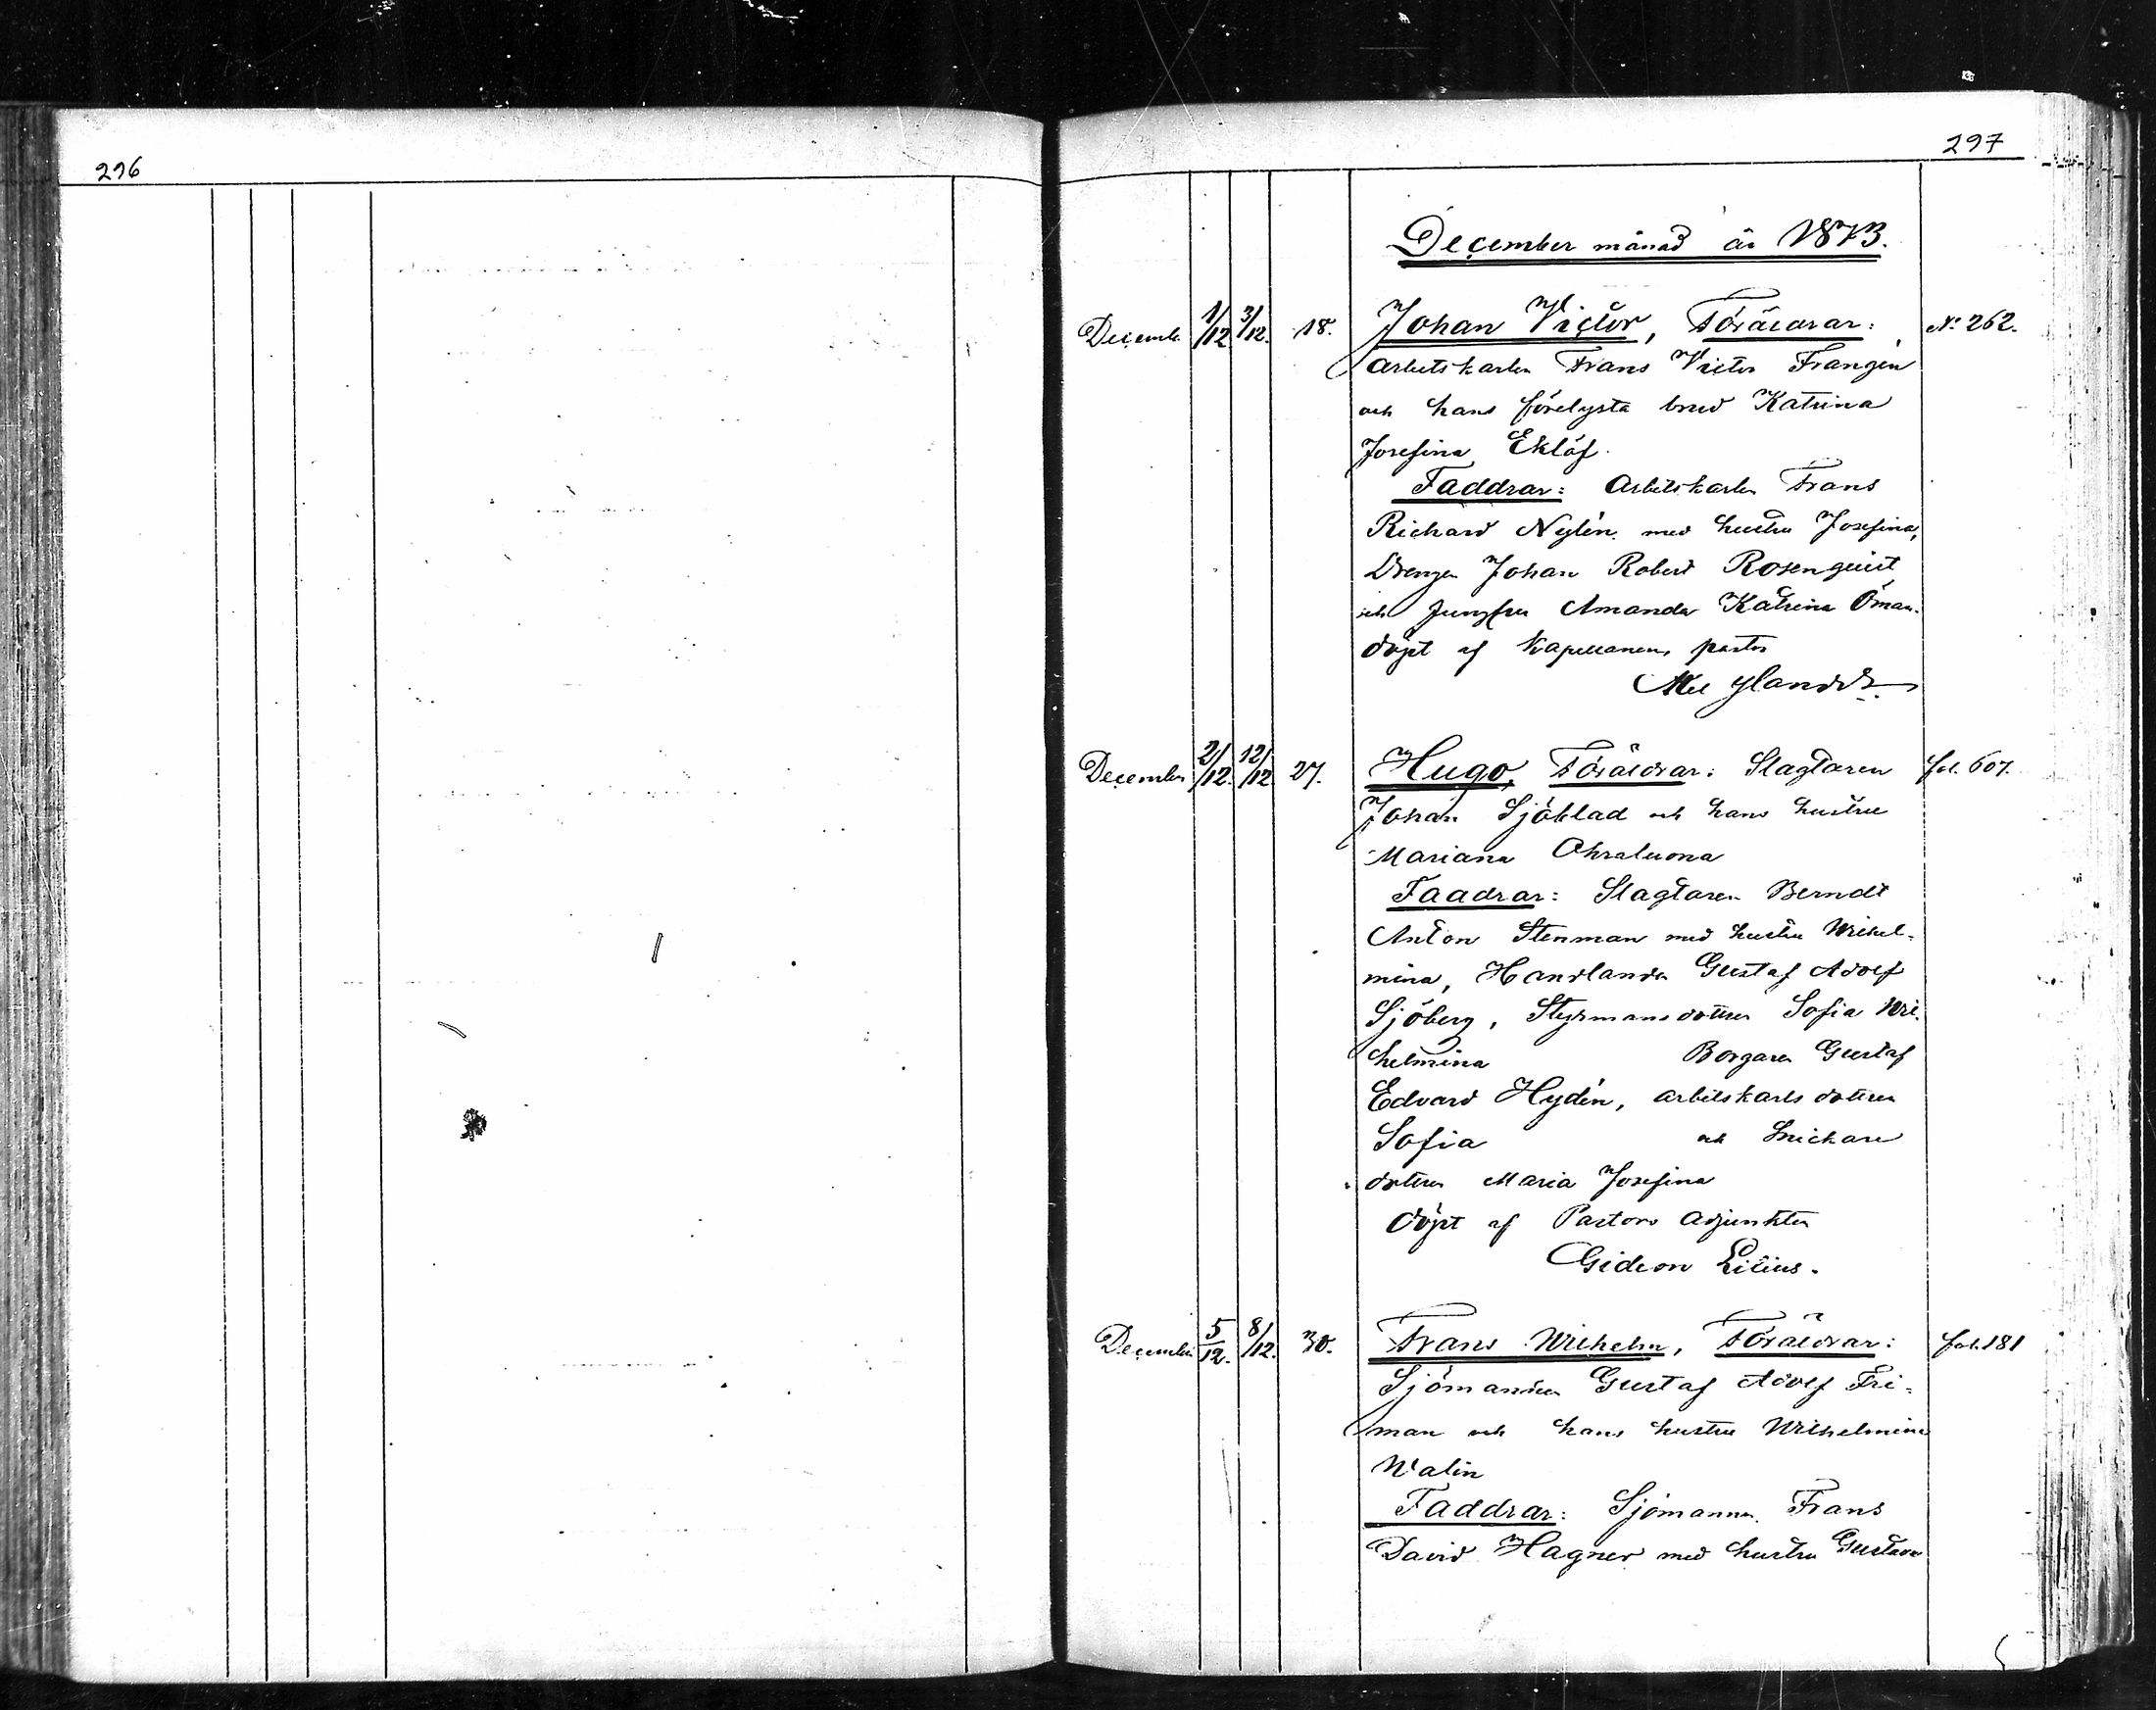 296
297
December månad år 1873.
Decemb. 1/12 3/12. 18. Johan Victor, Föräldrar: No 262.
Arbetskarlen Frans Victor Frangén
och hans förelysta brud Katrina
Josefina Eklöf.
Faddrar: Arbetskarlen Frans
Richard Nylén med hustru Josefina,
Drengen Johan Robert Rosenquist
och Jungfru Amanda Katrina Öman.
döpt af Kapellanen, pastor
December 2/12. 12/12 27. Hugo, Föräldrar: Slagtaren fol. 607.
Johan Sjöblad och hans hustru
Mariana Ohraluoma
Faddrar: Slagtaren Berndt
Anton Stenman med hustru Wilhel-
mina, Handlanden Gustaf Adolf
Sjöberg, Styrmansdottren Sofia Wil-
helmina Borgaren Gustaf
Edvard Hydén, arbetskarls dottren
Sofia och Snickare
dottren Maria Josefina
döpt af Pastors Adjunkten
Gideon Lilius.
December 5/12. 8/12. 30. Frans Wilhelm, Föräldrar: fol. 181
Sjömannen Gustaf Adolf Fri-
man och hans hustru Wilhelmina
Walin
Faddrar: Sjömannen Frans
David Hagner med hustru Gustava